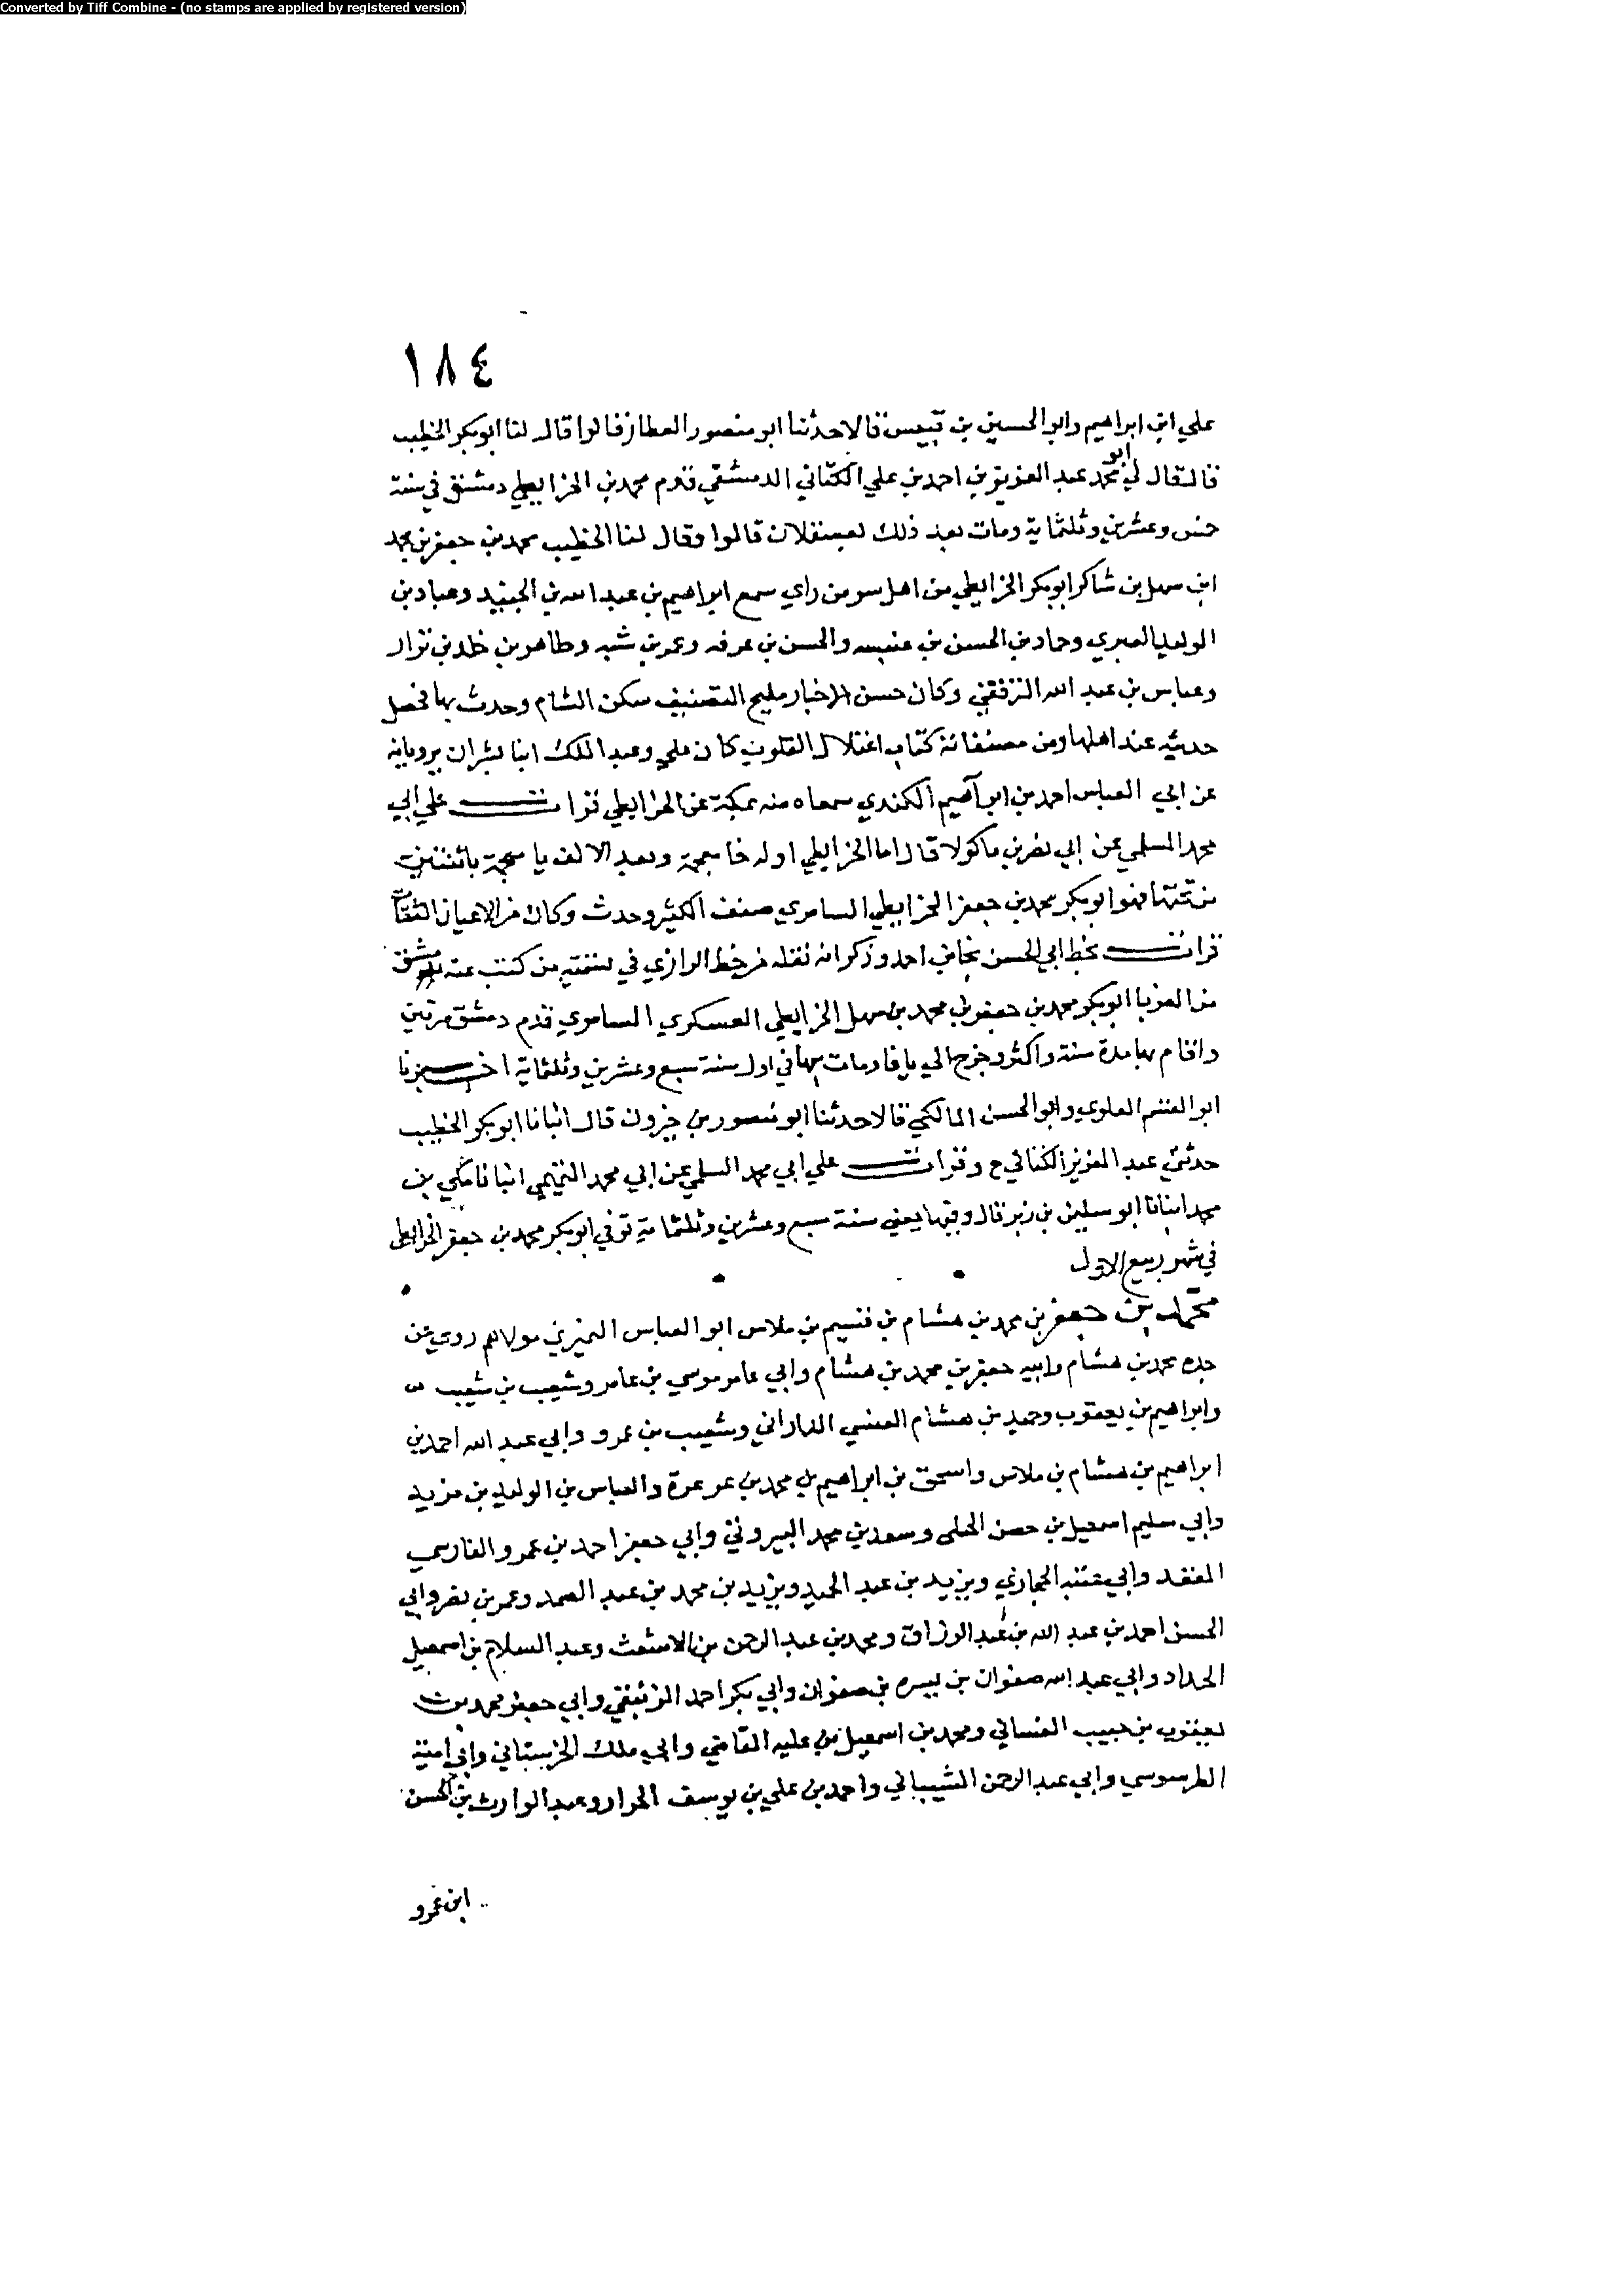 Converted by Tiff Combine - (no stamps are applied by registered version)
١٨٤
علي ابن ابراهيم وابو الحسين بن قبيس قالا حدثنا ابو منصور العطار قالوا قال لنا ابو بكر الخطيب
قال قال لي ابو محمد عبد العزيز بن احمد بن علي الكتاني الدمشقي قدم محمد بن الخرايطي دمشق في سنة
خمس وعشرين وثلثماية ومات بعد ذلك بعسقلان قالوا وقال لنا الخطيب محمد بن جعفر بن محمد
ابن سهل بن شاكر ابو بكر الخرايطي من اهل سر من راي سمع ابراهيم بن عبد الله بن الجنيد وعباد بن
الوليد العبري وحماد بن الحسن بن عنبسه والحسن بن عرفه وعمر بن شبه وطاهر بن خلد بن نزار
وعباس بن عبد الله الترقفي وكان حسن الاخبار مليح التصنيف سكن الشام وحدث بها فحصل
حديثه عند اهلها ومن مصنفاته كتاب اعتلال القلوب كان علي وعبد الملك ابنا بشران يرويانه
عن ابي العباس احمد بن ابراهيم الكندي سمعاه منه بمكة عن الخرايطي قرات علي ابي
محمد السلمي عن ابي نصر بن ماكولا قال اما الخرايطي اوله خا معجمة وبعد الالف يا معجمة باثنتين
من تحتها فهو ابو بكر محمد بن جعفر الخرايطي السامري صنف الكثير وحدث وكان من الاعيان الثقات
قرات بخط ابي الحسن نجا بن احمد وذكر انه نقله من خط الرازي في تسمية من كتب عنه بدمشق
من الغربا ابو بكر محمد بن جعفر بن محمد بن سهل الخرايطي العسكري السامري قدم دمشق مرتين
واقام بها مدة سنة واكثر وخرج الي يافا ومات بها في اول سنة سبع وعشرين وثلثماية اخبرنا
ابو القسم العلوي وابو الحسن المالكي قالا حدثنا ابو منصور بن خيرون قال انبانا ابو بكر الخطيب
حدثني عبد العزيز الكتاني ح وقرات علي ابي محمد السلمي عن ابي محمد التميمي انبانا مكي بن
محمد انبانا ابو سليمن بن زبر قال وفيها يعني سنة سبع وعشرين وثلثماية توفي ابو بكر محمد بن جعفر الخرايطي
في شهر ربيع الاول
محمد بن جعفر بن محمد بن هشام بن قسيم بن ملاس ابو العباس النميري مولاهم روي عن
جده محمد بن هشام وابيه جعفر بن محمد بن هشام وابي عامر موسي بن عامر وشعيب بن شعيب
وابراهيم بن يعقوب وحميد بن هشام العنسي الداراني وشعيب بن عمرو وابي عبد الله احمد بن
ابراهيم بن هشام بن ملاس واسحق بن ابراهيم بن محمد بن عرعرة والعباس بن الوليد بن مزيد
وابي سليم اسمعيل بن حصن الحلى وسعد بن محمد البيروتي وابي جعفر احمد بن عمرو الفارسي
المقعد وابي عتبه الحجازي ويزيد بن عبد الحميد ويزيد بن محمد بن عبد الصمد وعمر بن نصر وابي
الحسن احمد بن عبد الله بن عبد الرزاق ومحمد بن عبد الرحمن بن الاشعث وعبد السلام بن اسمعيل
الحداد وابي عبد الله صفوان بن بيسره بن صفوان وابي بكر احمد وابي جعفر محمد بن
يعقوب بن حبيب الغساني ومحمد بن اسمعيل بن عليه القاضي وابي ملك الخرستاني وابي امية
الطرسوسي وابي عبد الرحمن الشيباني واحمد بن علي بن يوسف الحرار وعبد الوارث بن الحسن
ابن عمرو